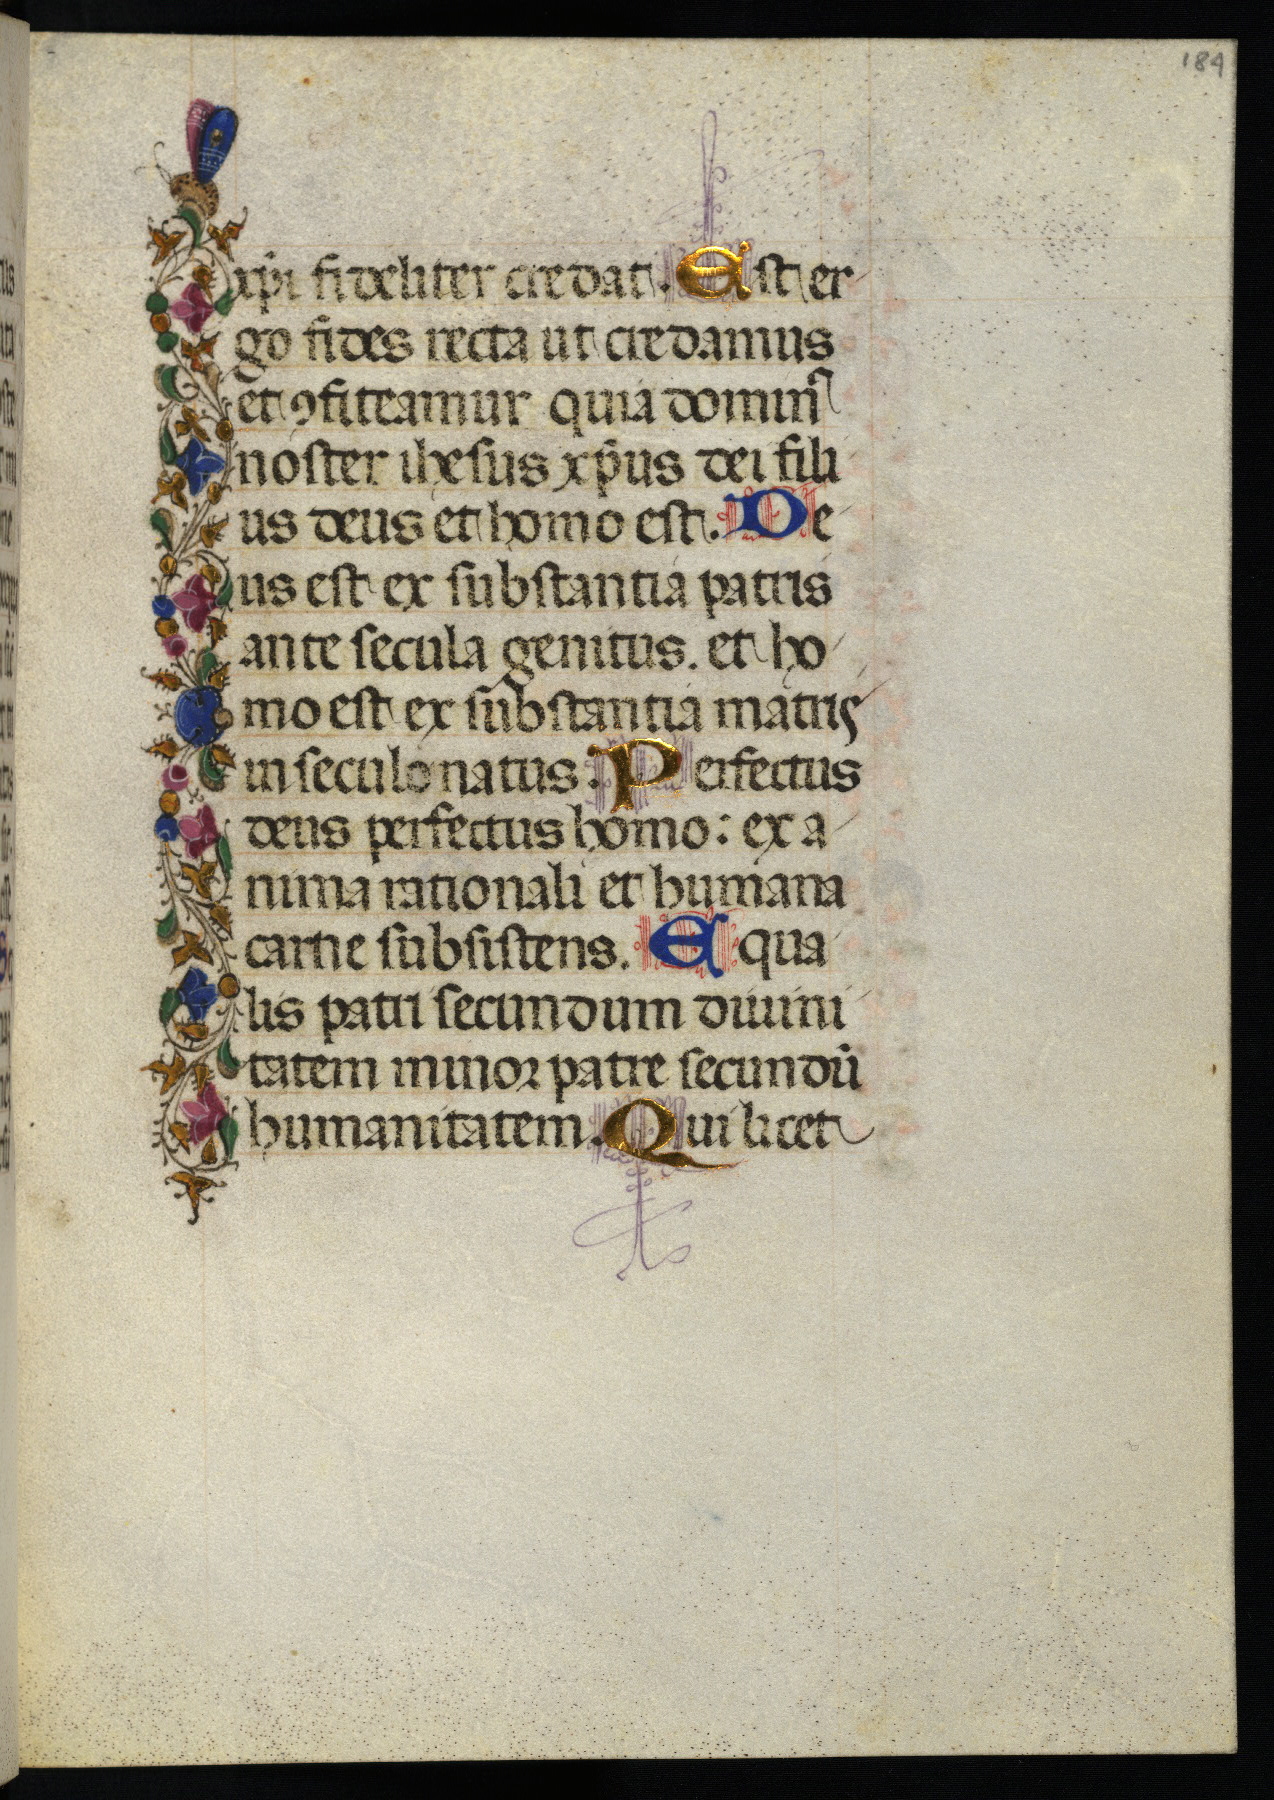 184
xp̄i fideliter credat. Est er
go fides recta ut credamus
et ꝯfiteamur quia domin᷒
noster ihesus xp̄us dei fili
us deus et homo est. De
us est ex substantia patris
ante secula genitus. et ho
mo est ex substantia matris
in seculo natus. Perfectus
deus perfectus homo: ex a
nima rationali et humana
carne subsistens. Equa
lis patri secundum diuini
tatem minor patre secundū
humanitatem. Qui licet